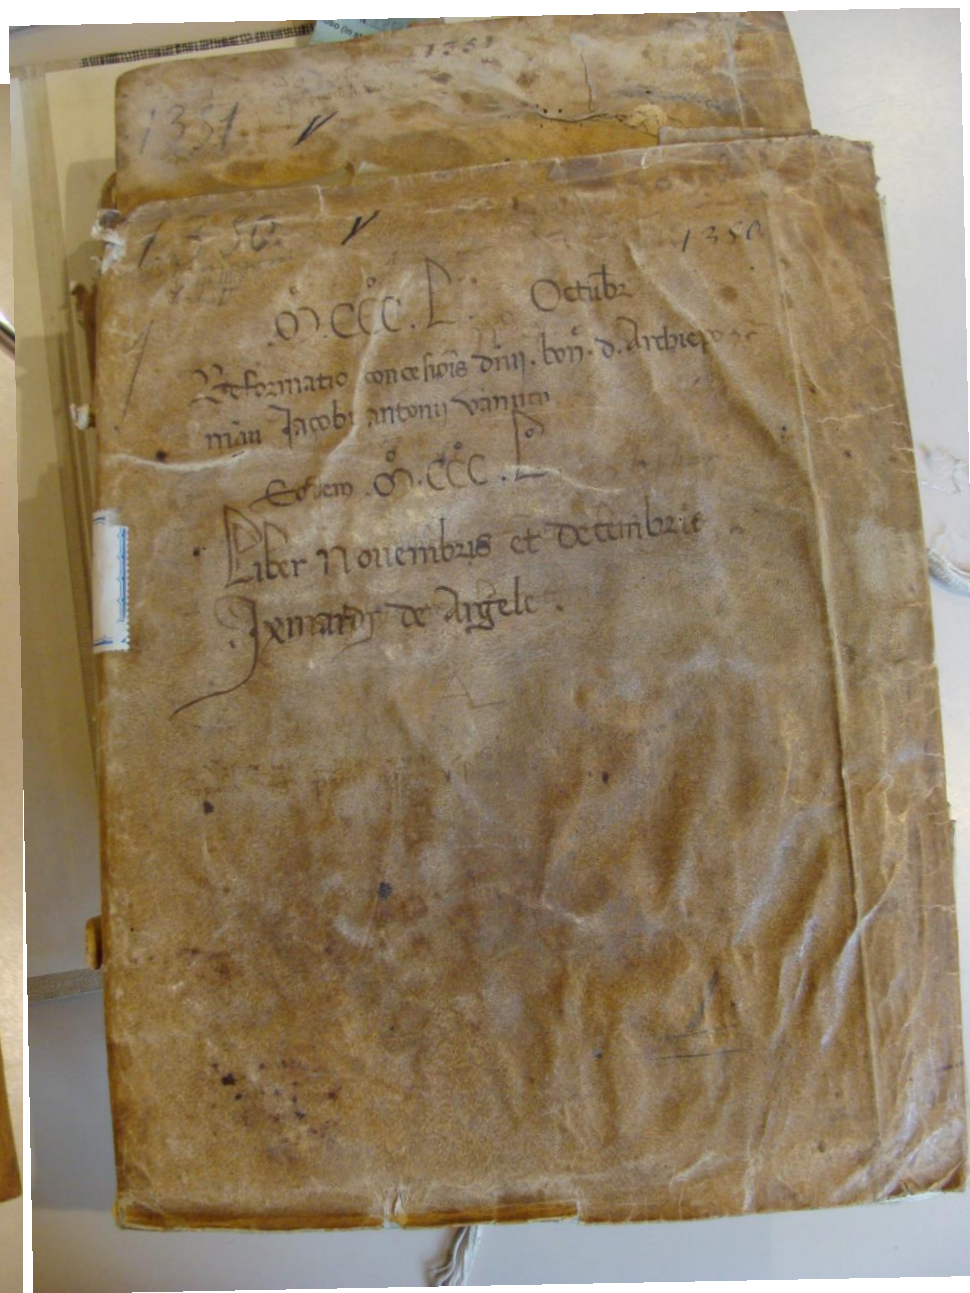 1351
1351
1350
1350
.M.CCC.L. Octubr
Reformatio concesiois dnij . bon . d. Archiepo
man Jacobi antonij vannucii
Eodem .M.CCC.L
Liber Nouembris et decembris
Jxmardi de Argele .